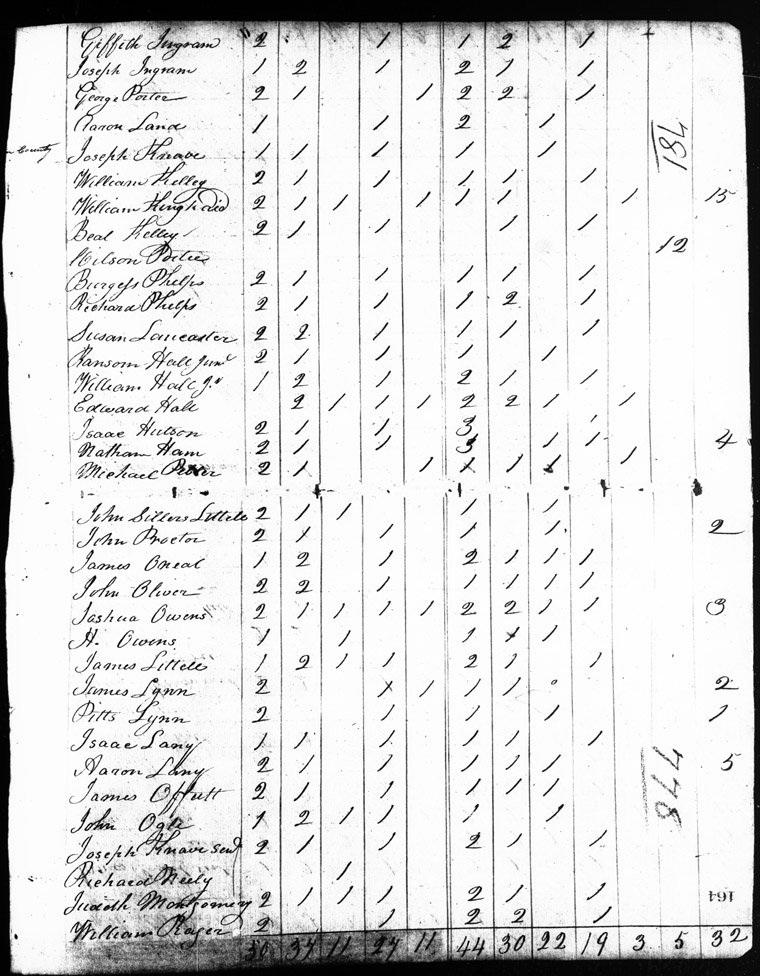 Griffith Ingram " 2 1 1 2 1
Joseph Ingram 1 2 1 2 1 1
George Porter 2 1 1 2 2 1
Aaron Land 1 1 2 1
County Joseph Knave 1 1 1 1 1
William Kelley 2 1 1 1 1 1
William 2 1 1 1 1 1 1 15
Beal Kelley 2 1 1 1 1
Wilson Porter 12
Burgess Phelps 2 1 1 1 1 1
Richard Phelps 2 1 1 1 2 1
Susan Lancaster 2 2 1 1 1 1
Ransom Hall Junr 2 1 1 1 1
William Hall Jr 1 2 1 2 1 1
Edward Hall 2 1 1 1 2 2 1 1
Isaac Hutson 2 1 1 3 1
Nathan Ham 2 1 1 3 1 1 4
Michael 2 1 1 1 1 1 1
John Sillers Littele 2 1 1 1 1
John Proctor 2 1 1 1 1 2
James Oneal 1 2 1 2 1 1 1
John Oliver 2 2 1 1 1 1 1
Jashua Owens 2 1 1 1 1 2 2 1 1 3
H. Owens 1 1 1 1 1
James Littele 1 2 1 1 2 1 1
James Lynn 2 1 1 1 1 2
Pitts Lynn 2 1 1 1 1
Isaac Lany 1 1 1 1 1 1
Aaron Lany 2 1 1 1 1 1 5
James Offutt 2 1 1 1 1 1
John Ogle 1 2 1 1 1 1
Joseph Knave Senr 2 1 1 2 1 1
Richard Neely 1
Judith Montgomery 2 1 1 1 2 1 1
William Rager 2 1 2 2 1
50 37 11 27 11 44 30 22 19 3 5 32
184
778
164